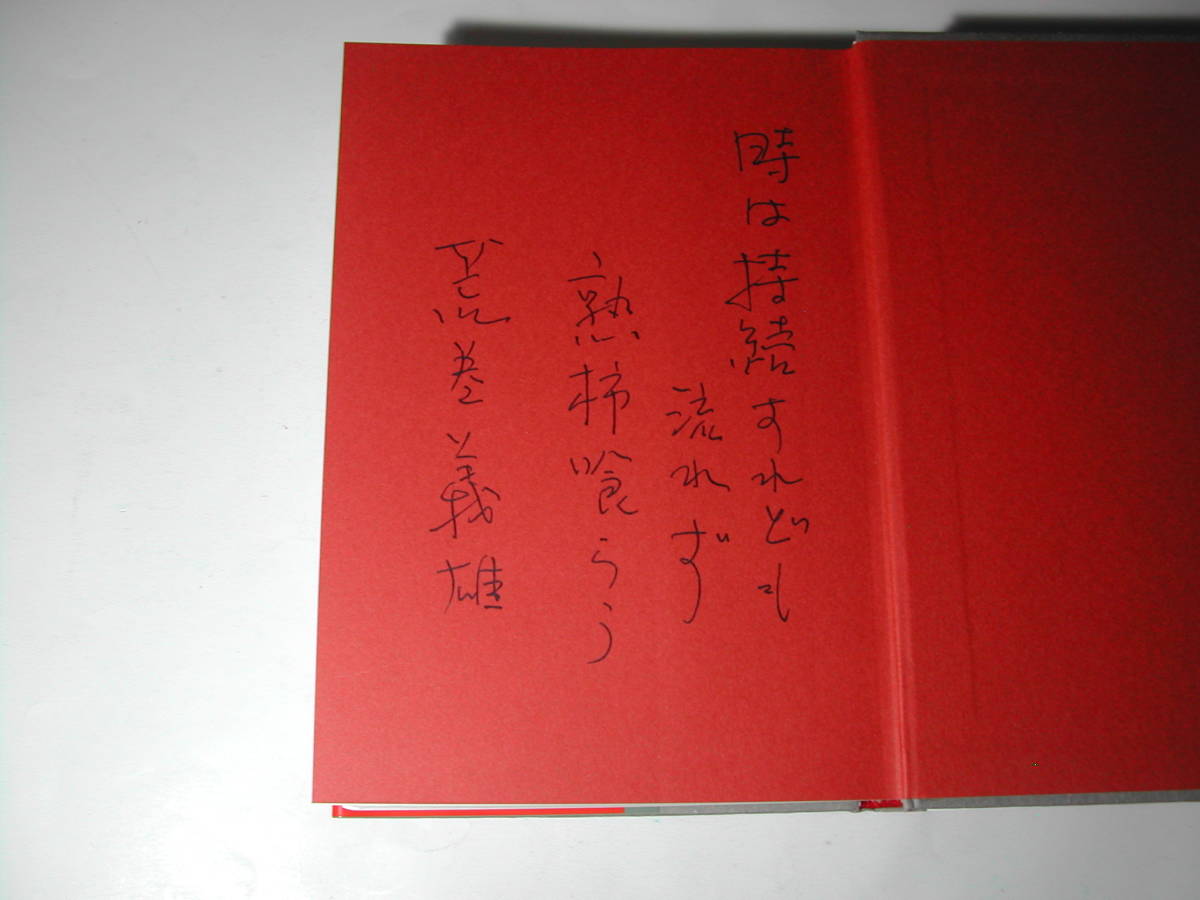 時は持続すれども
流れず
熟柿喰らう
荒巻義雄